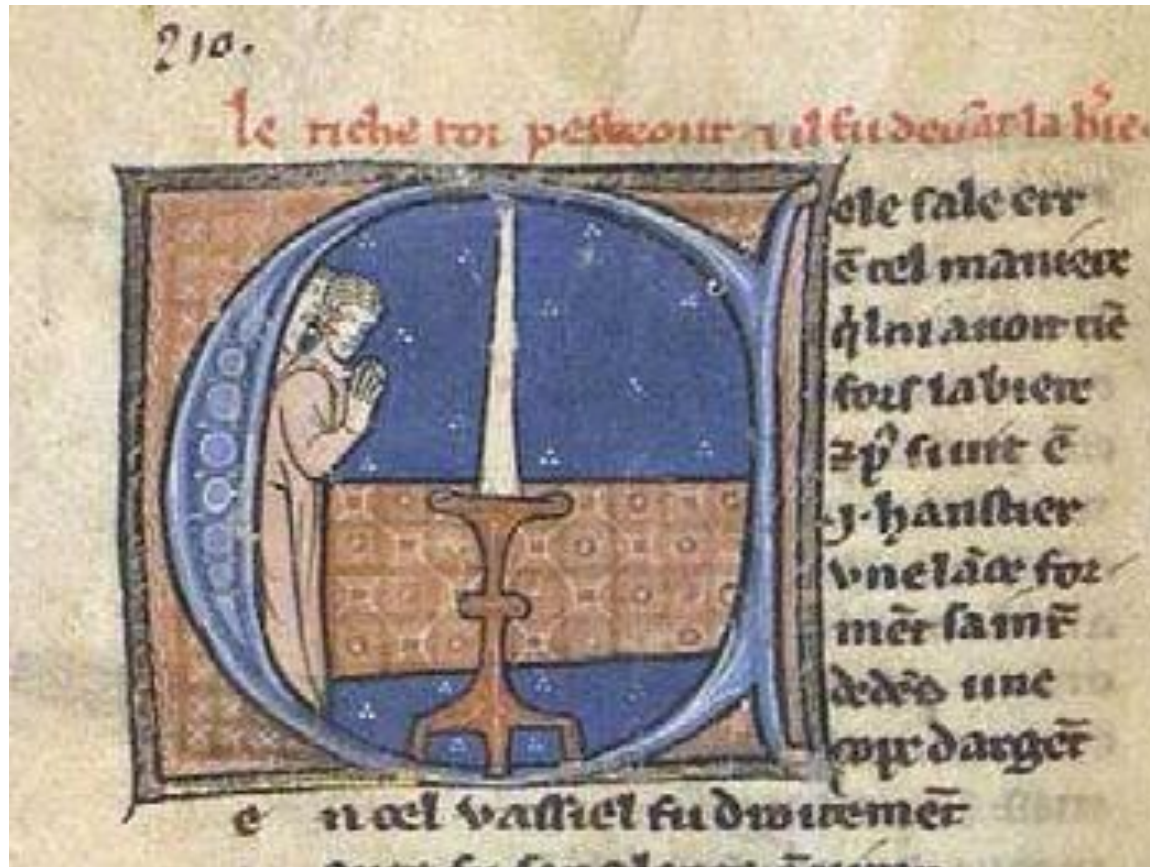 210.
le riche roi pesceour ⁊ il fu deuāt la bie
ele sale err
ē cel maniere
q̄l ni auoit riē
fors la biere
fu mit ē
.j. hanstier
vne lāce for
mēt sainēt
dedēs une
cope dargēt
e n cel vassiel fu droitemēt